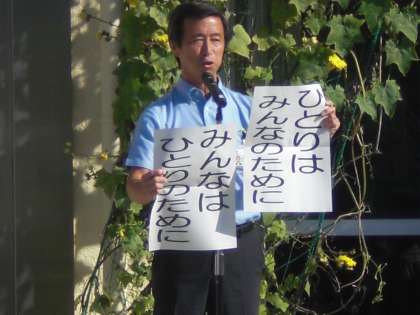 ひとりは
みんなのために
みんなは
ひとりのために